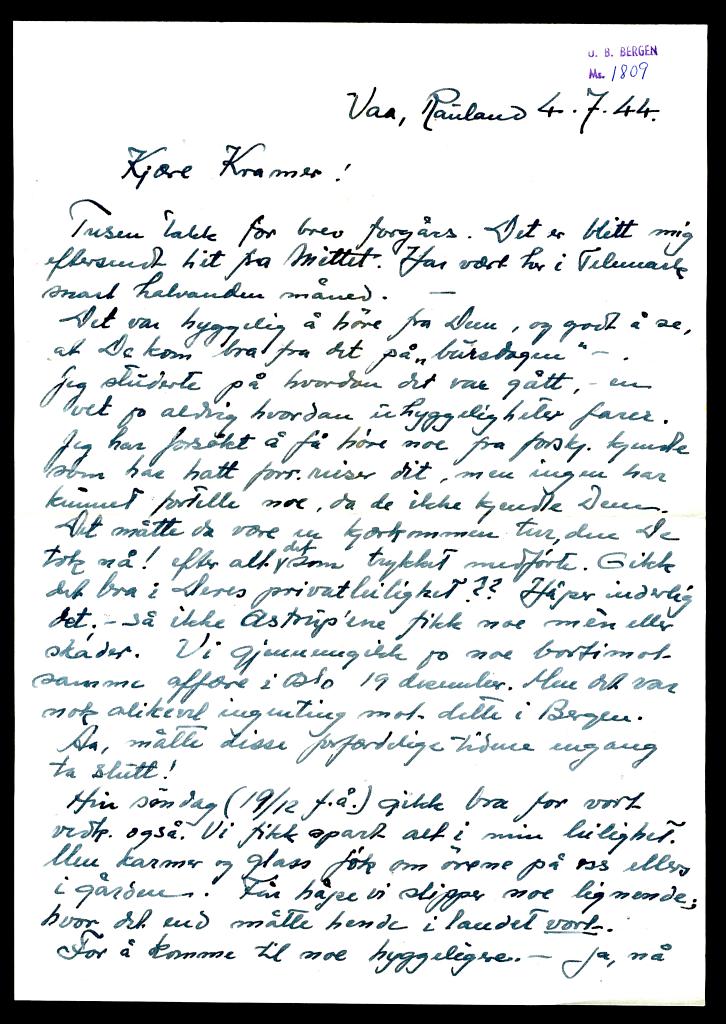 U. B. BERGEN
Ms. 1809
Vaa, Rauland 4.7.44.
Kjære Kramer!
Tusen takk for brev forgårs. Det er blitt mig
eftersendt hit fra Mittet. Har vært her i Telemark
snart halvanden måned. —
Det var hyggelig å höre fra Dem, og godt å se,
at De kom bra fra det på "bursdagen" — .
Jeg studerte på hvordan det var gått, - en
vet jo aldrig hvordan uhyggeligheter farer.
Jeg har forsökt å få höre noe fra forskj. kjendte
som har hatt forr. reiser dit, men ingen har
kunnet fortelle noe, da de ikke kjendte Dem.
Det måtte da være en kjærkommen tur, den De
tok nå! efter alt det som trykket medförte. Gikk
det bra i Deres privatleilighet?? Håper inderlig
det. - så ikke Astrup'ene fikk noe mén eller
skader. Vi gjennemgikk jo noe bortimot
samme affære i Oslo 19 desember. Men det var
nok alikevel ingenting mot dette i Bergen.
Aa, måtte disse forfærdelige tidene engang
ta slutt!
Hin söndag (19/12 f.å.) gikk bra for vort
vedk. også. Vi fikk spart alt i min leilighet.
Men karmer og glass fök om örene på oss ellers
i gården. Får håpe vi slipper noe lignende;
hvor det end måtte hende i landet vort.
For å komme til noe hyggeligere. — Ja, nå